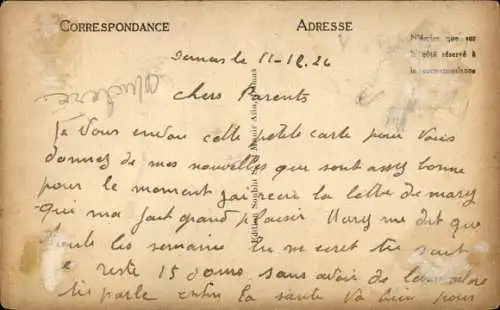 CORRESPONDANCE
ADRESSE
N'écrire que sur
le côté réservé à
la correspondance
Damas le 11-12.26
Chers Parents
Je vous envoie cette petite carte pour vous
donnez de mes nouvelles que sont assez bonne
pour le moment j'ai recu la lettre de marcy
qui ma fait grand plaisir Marcy me dit que
toute les semaine tu
reste 15 jours sans avoir de
parle entre la santé va bien pour
Edition Sophia